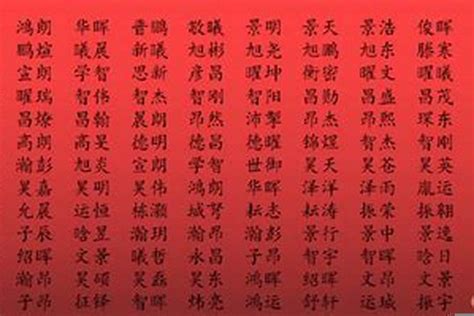 鸿朗 华晖 晋鹏 敬曦 景明 景天 景浩 俊晖
鹏煊 曦晨 曦新 旭彬 旭尧 旭鹏 旭东
宣朗 学智 思新 彦昌 曜坤 衡密 文曜 曦晨
曜瑞 智伟 智杰 智刚 智阳 昌勋 昌盛 昌茂
昌燎 昌翰 昌宗 昂然 昌黎 昂杰 昂熙 琛东
高朗 晨朗 德明 德昌 德曜 锦煜 智杰 智刚
瀚彭 旭炎 宣朗 学智 世御 昊天 昊苍 昊英
昊嘉 昊明 昊伟 鸿朗 华晖 泽洋 振海 胤运
允晨 运恒 栋灏 城努 耘志 耘涛 振荣 振翱
子辰 晗昱 瀚玥 瀚昂 瀚彭 景行 中震 景逸
绍晖 文景 曦哲 新曦 子昂 智宇 智晖 晗日
瀚昂 昊硕 昊磊 昊东 鸿晖 绍晖 文昂 文景
子昂 征铎 智奥 炜亮 鸿运 舒轩 运城 振宇